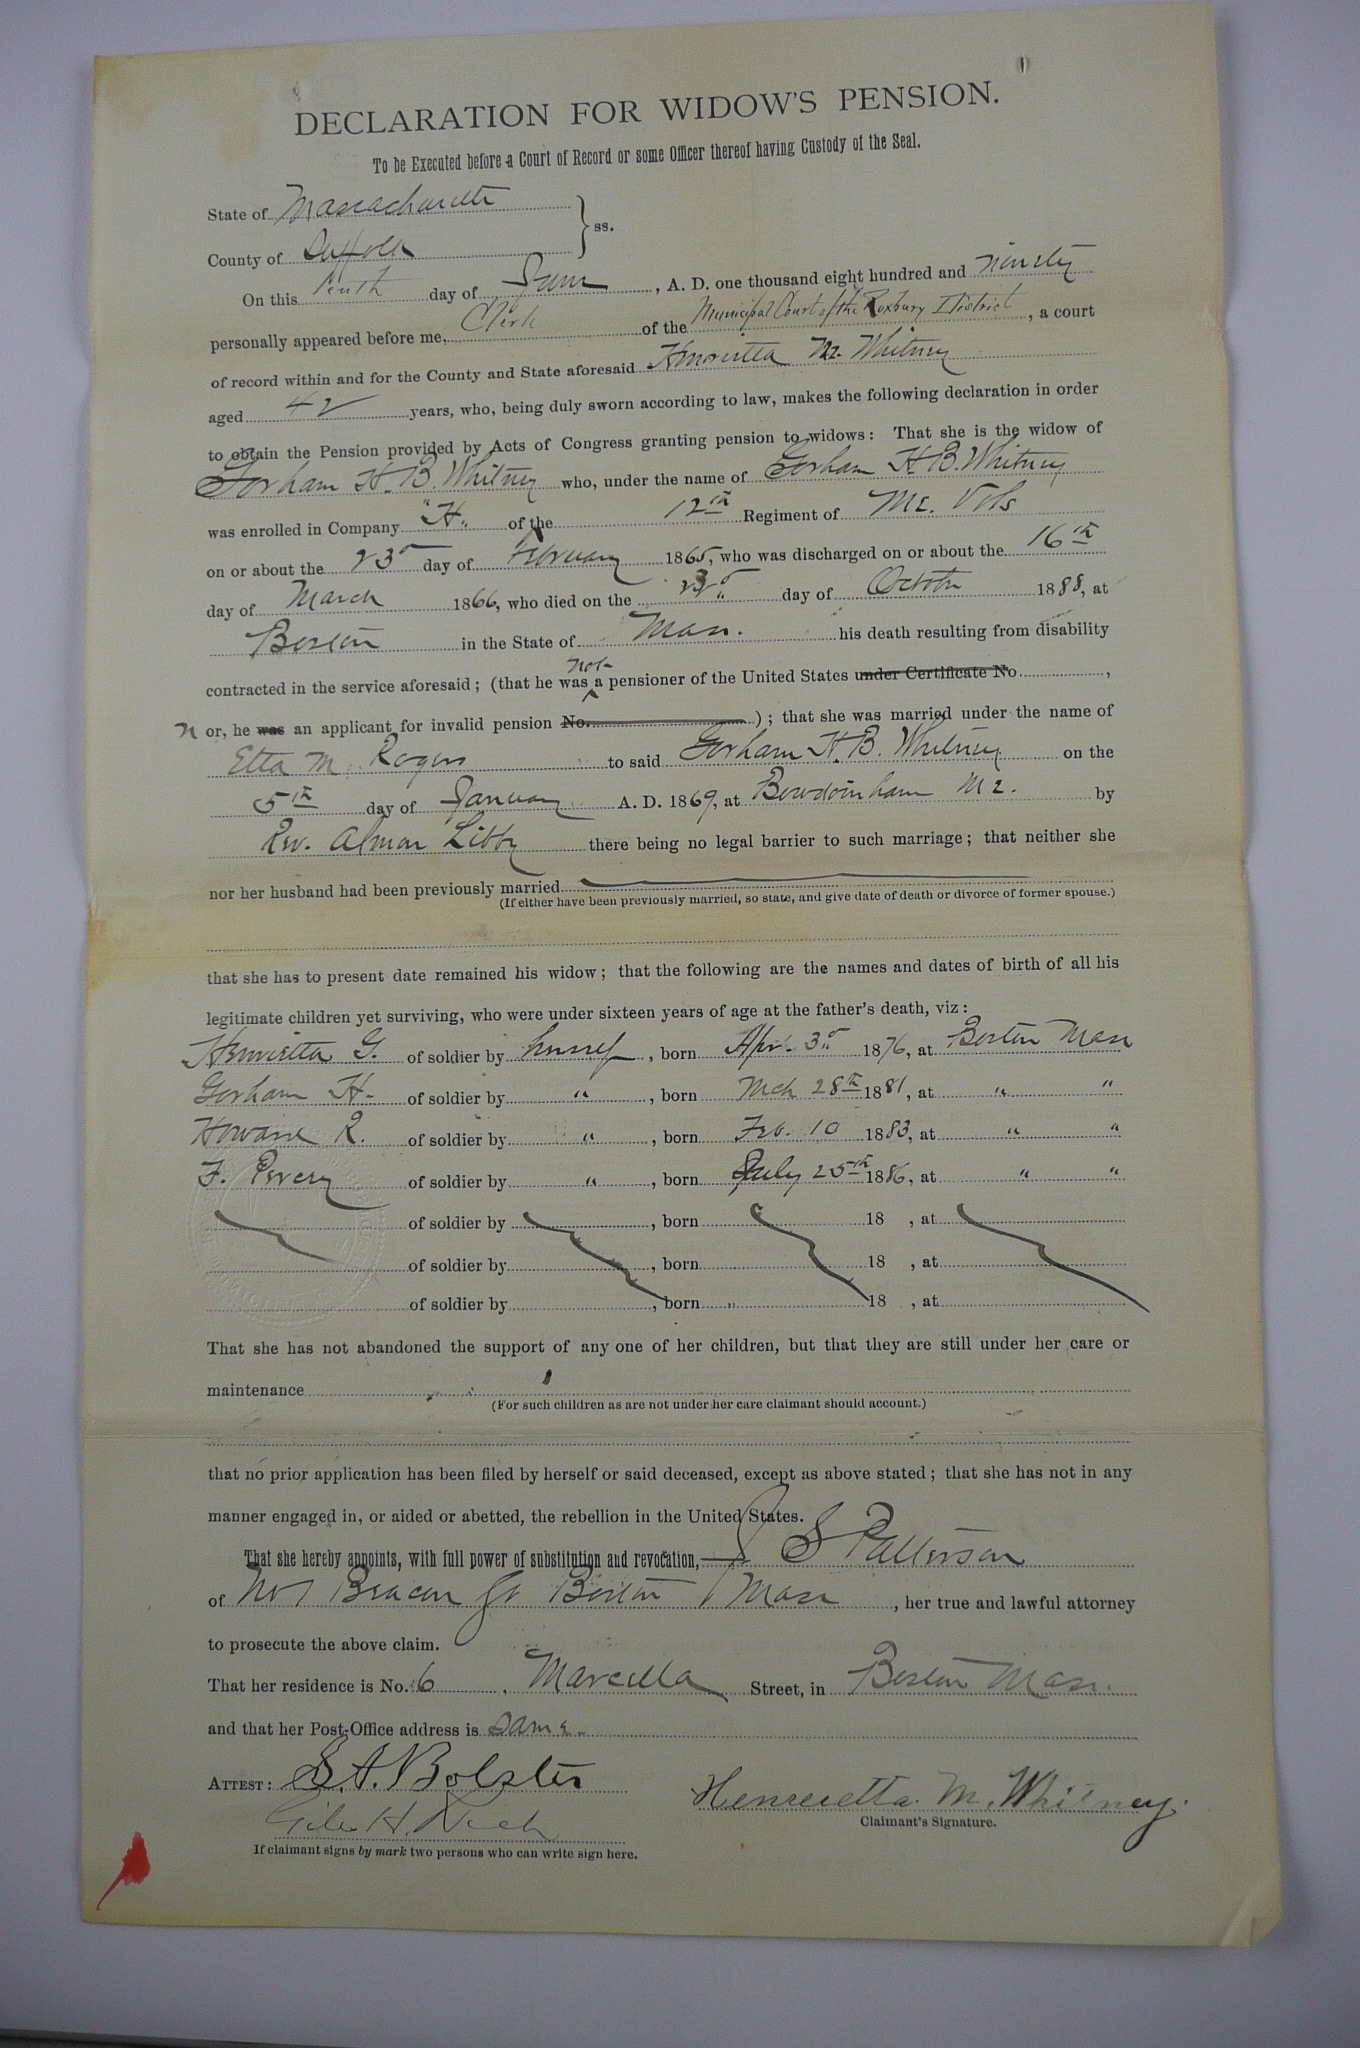 DECLARATION FOR WIDOW'S PENSION.
To be Executed before a Court of Record or some Officer thereof having Custody of the Seal.
State of Massachusetts } ss.
County of Suffolk
On this tenth day of June, A. D. one thousand eight hundred and ninety
personally appeared before me, Clerk of the Municipal Court of the Roxbury District, a court
of record within and for the County and State aforesaid Henrietta M. Whitney
aged 42 years, who, being duly sworn according to law, makes the following declaration in order
to obtain the Pension provided by Acts of Congress granting pension to widows: That she is the widow of
Gorham H. B. Whitney who, under the name of Gorham H. B. Whitney
was enrolled in Company "H" of the 12th Regiment of Me. Vols
on or about the 23d day of February 1865, who was discharged on or about the 16th
day of March 1866, who died on the day of October 1888, at
Boston in the State of Mass. his death resulting from disability
contracted in the service aforesaid; (that he was not a pensioner of the United States under Certificate No.,
nor, he was an applicant for invalid pension No. ); that she was married under the name of
Etta M. Rogers to said Gorham H. B. Whitney on the
5th day of January A. D. 1869, at Bowdoinham Me. by
Rev. Almon Libby there being no legal barrier to such marriage; that neither she
nor her husband had been previously married
(If either have been previously married, so state, and give date of death or divorce of former spouse.)
that she has to present date remained his widow; that the following are the names and dates of birth of all his
legitimate children yet surviving, who were under sixteen years of age at the father's death, viz:
Henrietta G. of soldier by herself, born Apr. 3d 1876, at Boston Mass
Gorham H. of soldier by ", born Mch 28th 1881, at " "
Howard R. of soldier by ", born Feb. 10 1883, at " "
F. Percy of soldier by ", born July 25th 1886, at " "
of soldier by , born 18 , at
of soldier by , born 18 , at
of soldier by , born " 18 , at
That she has not abandoned the support of any one of her children, but that they are still under her care or
maintenance
(For such children as are not under her care claimant should account.)
that no prior application has been filed by herself or said deceased, except as above stated; that she has not in any
manner engaged in, or aided or abetted, the rebellion in the United States.
That she hereby appoints, with full power of substitution and revocation, J S Patterson
of No 1 Beacon St Boston Mass, her true and lawful attorney
to prosecute the above claim.
That her residence is No. 6 Marcella Street, in Boston Mass.
and that her Post-Office address is Same.
ATTEST: S. A. Bolster
H.
Henrietta M. Whitney.
Claimant's Signature.
If claimant signs by mark two persons who can write sign here.